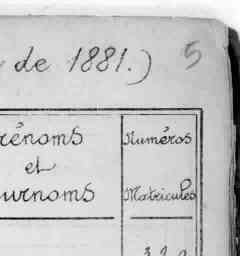 de 1881.) 5
rénoms
et
urnoms
Numéros
Matricules